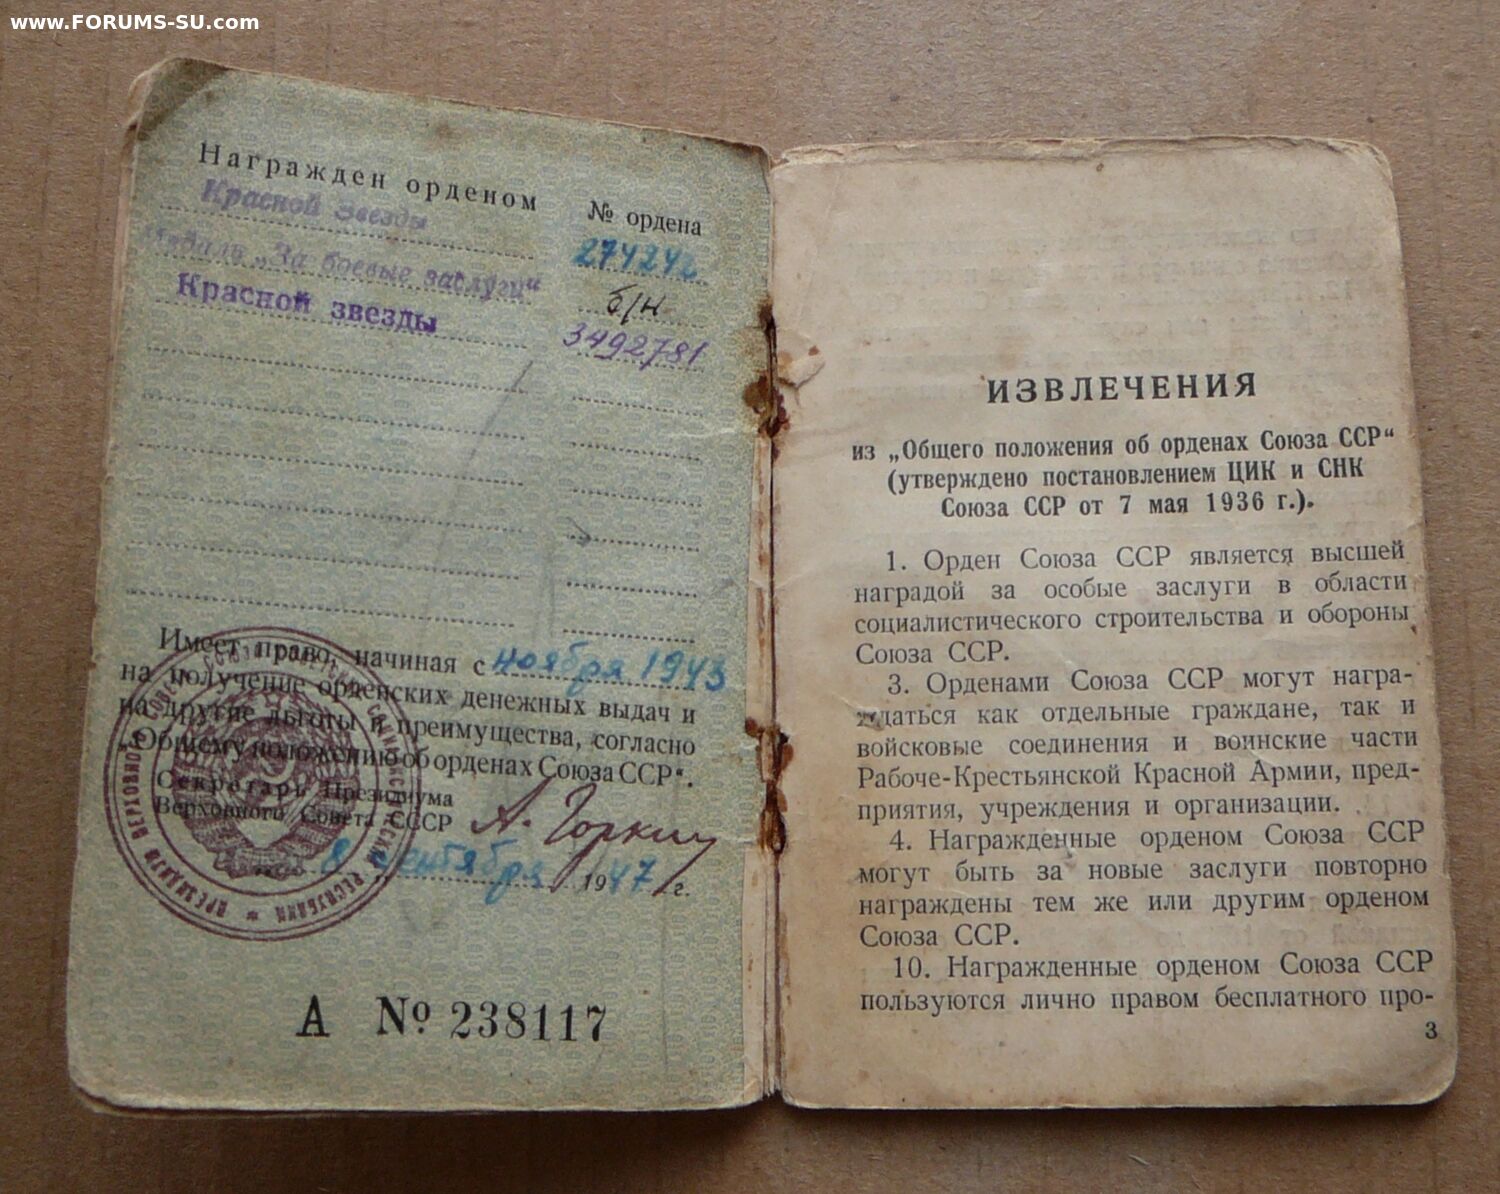 www.FORUMS-SU.com
Награжден орденом
№ ордена
Красной Звезды
274242
Медаль „За боевые заслуги“
б/н
Красной звезды
3492781
Имеет право, начиная с ноября 1943
на получение орденских денежных выдач и
на другие льготы и преимущества, согласно
„Общему положению об орденах Союза ССР“.
Секретарь Президиума
Верховного Совета СССР
А. Горкин
8 сентября 1947 г.
А № 238117
ИЗВЛЕЧЕНИЯ
из „Общего положения об орденах Союза ССР“
(утверждено постановлением ЦИК и СНК
Союза ССР от 7 мая 1936 г.).
1. Орден Союза ССР является высшей
наградой за особые заслуги в области
социалистического строительства и обороны
Союза ССР.
3. Орденами Союза ССР могут награ-
ждаться как отдельные граждане, так и
войсковые соединения и воинские части
Рабоче-Крестьянской Красной Армии, пред-
приятия, учреждения и организации.
4. Награжденные орденом Союза ССР
могут быть за новые заслуги повторно
награждены тем же или другим орденом
Союза ССР.
10. Награжденные орденом Союза ССР
пользуются лично правом бесплатного про-
3